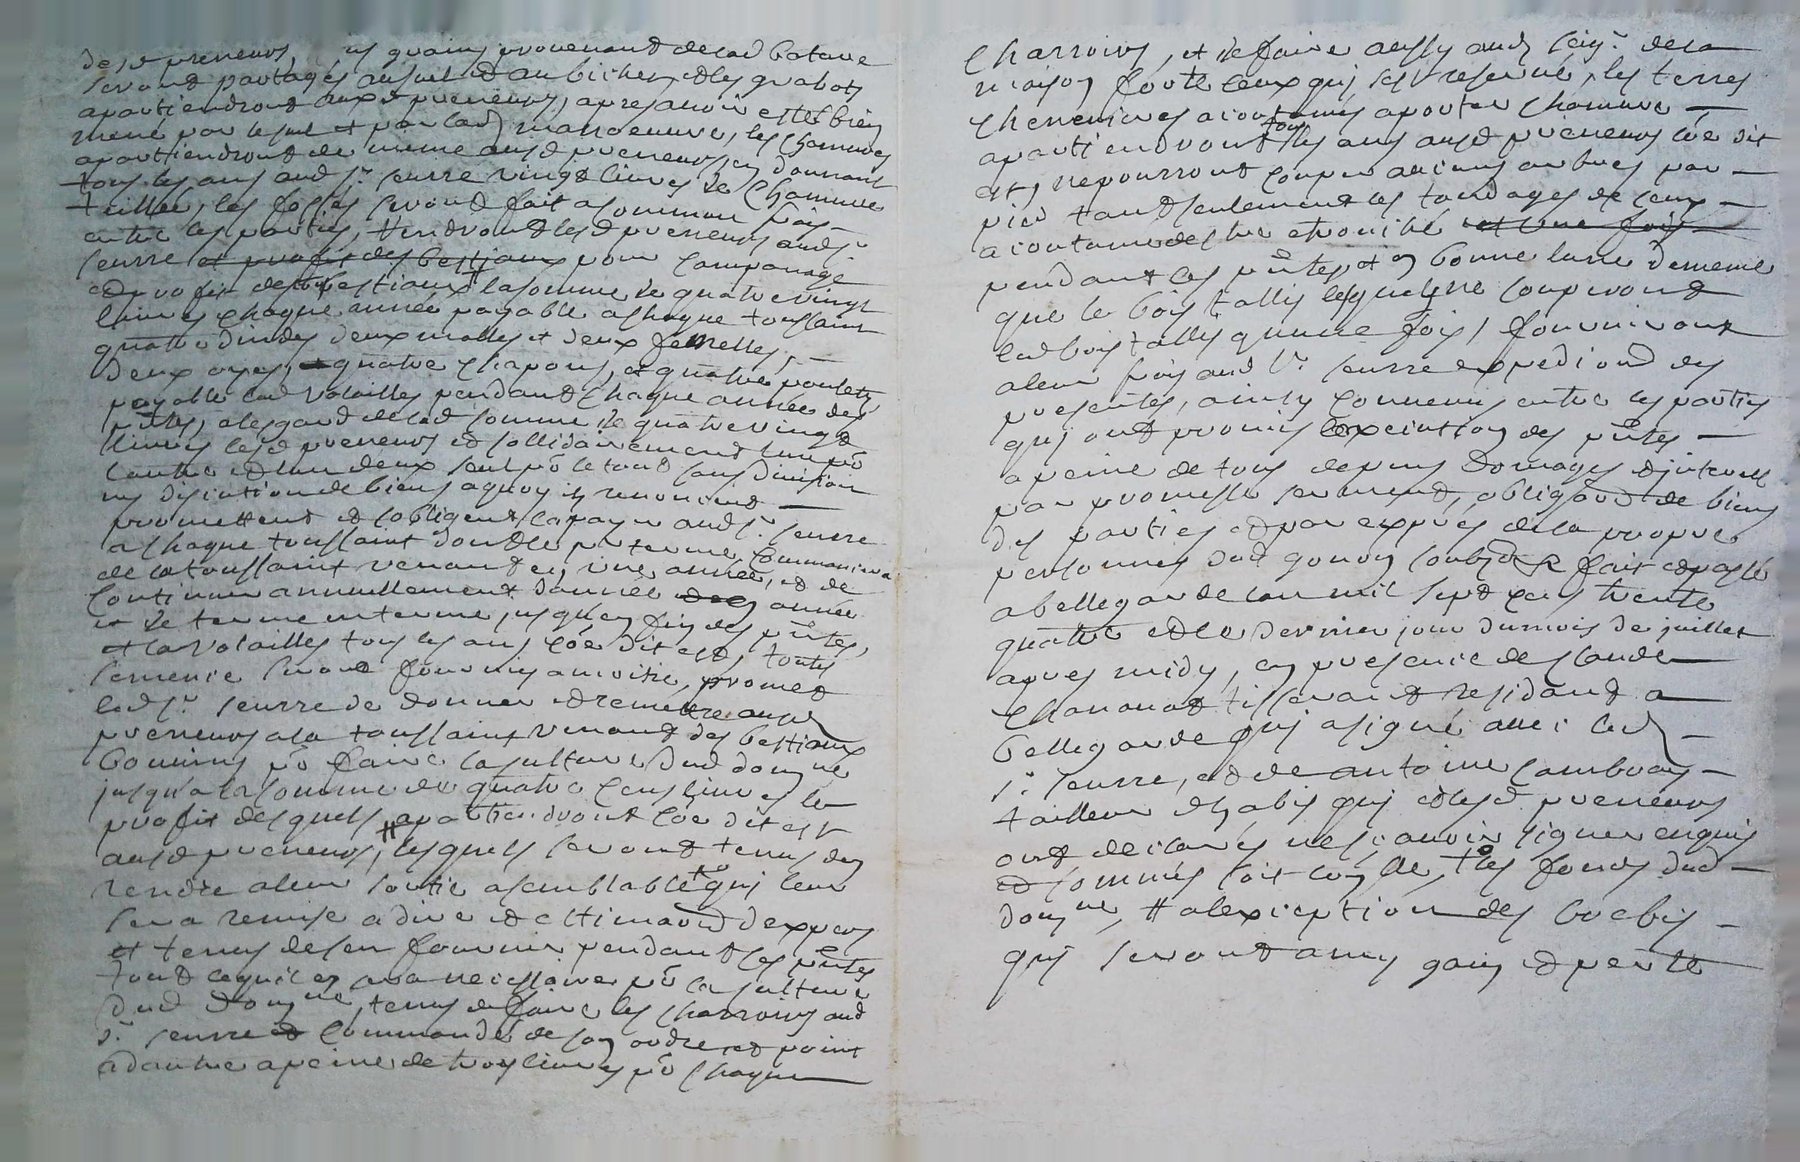 desd preneurs, les grains provenant de lad batture
seront partagés au sol et au bichet et les grabots
apartiendront auxd preneurs, apres avoir esté bien
mené par le sol et par lad manoeuvre, les chanvres
apartiendront de meme ausd preneurs en donnant
tous les ans aud sr seurre vingt livres de chanvre
teillée, les fosses seront fait a commun frais
entre les parties, tiendront lesd preneurs aud sr
seurre et profit des bestiaux pour companage
et profit des bestiaux la somme de quatre vingt
livres chaque année payable a chaque toussaint
quatre dindes deux malles et deux femelles,
deux oyes, quatre chapons, et quatre poulets
payable lad volailles pendant chaque année des
pntes, a legard de lad somme de quatre vingt
livres lesd preneurs et sollidairement lun pr
lautre et lun deux seul pr le tout sans division
ny discution de biens a quoy ils renoncent
promettent et sobligent la payer aud sr seurre
a chaque toussaint dont le pr terme commancera
de la toussaint venant en une année, et de
continuer annuellement dannée en année
et de terme en terme jusqu'en fin des pntes,
et la volailles tous les ans coe dit est, toute
semence seront fournis a moitié, promet
led sr seurre de donner et remettre ausd
preneurs a la toussaint venant des bestiaux
bouvins pr faire la culture dud domne
jusqu'a la somme de quatre cens livres le
profit desquels apartiendront coe dit est
ausd preneurs, lesquels seront tenus den
rendre a leur sortie a semblable qui leur
sera remise a dire et estimaon dexpers
et tenus de sen fournir pendant les pntes
tout ce quil en sera necessaire pr la culture
dud domne, tenus de faire les charrois aud
sr seurre et commandé de son ordre et point
dautre a peine de trois livres pr chaque
Charrois, et de faire aussy aud seigr de la
maison forte ceux qui sest reservé, les terres
chenevieres acoutumés a porter chanvre
apartiendront tous les ans ausd preneurs coe dit
est, ne pourront couper aucuns arbres par
pied tant seulement les tondages de ceux
acoutumé destre etroussé et une fois
pendant les pntes et en bonne lune de meme
que le bois tallis lesquels ne couperont
led bois tallis qu'une fois, fourniront
a leur frais aud sr seurre expediond des
presentes, ainsy convenus entre les parties
qui ont promis lexecution des pntes
a peine de tous depens domages et interest
par promesse serment, obligaond de biens
des parties et par exprés de la propre
personnes dud gonon soubzon fait et passé
a bellegarde lan mil sept cens trente
quatre et le dernier jour du mois de juillet
apres midy, en presence de claude
Chananat tisserant residant a
bellegarde qui a signé avec led
sr seurre, et de antoine cambray
tailleur dhabis qui et lesd preneurs
ont declarés ne scavoir signer enquis
et sommés soit conlle, les foins dud
domne, a lexception des brebis
qui seront a my gain et perte